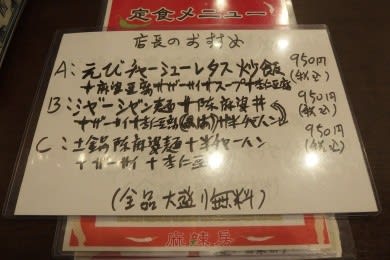 定食メニュー
店長のおすすめ
A:えびチャーシューレタス炒飯 950円
+麻婆豆腐+ザーサイ+スープ+杏仁豆腐 (税込)
B:ジャージャン麺+陳麻婆丼 950円
+ザーサイ+杏仁豆腐 +半チャーハン (税込)
C:土鍋陳麻婆麺+半チャーハン 950円
+ザーサイ+杏仁豆腐 (税込)
(全品大盛り無料)
麻辣房